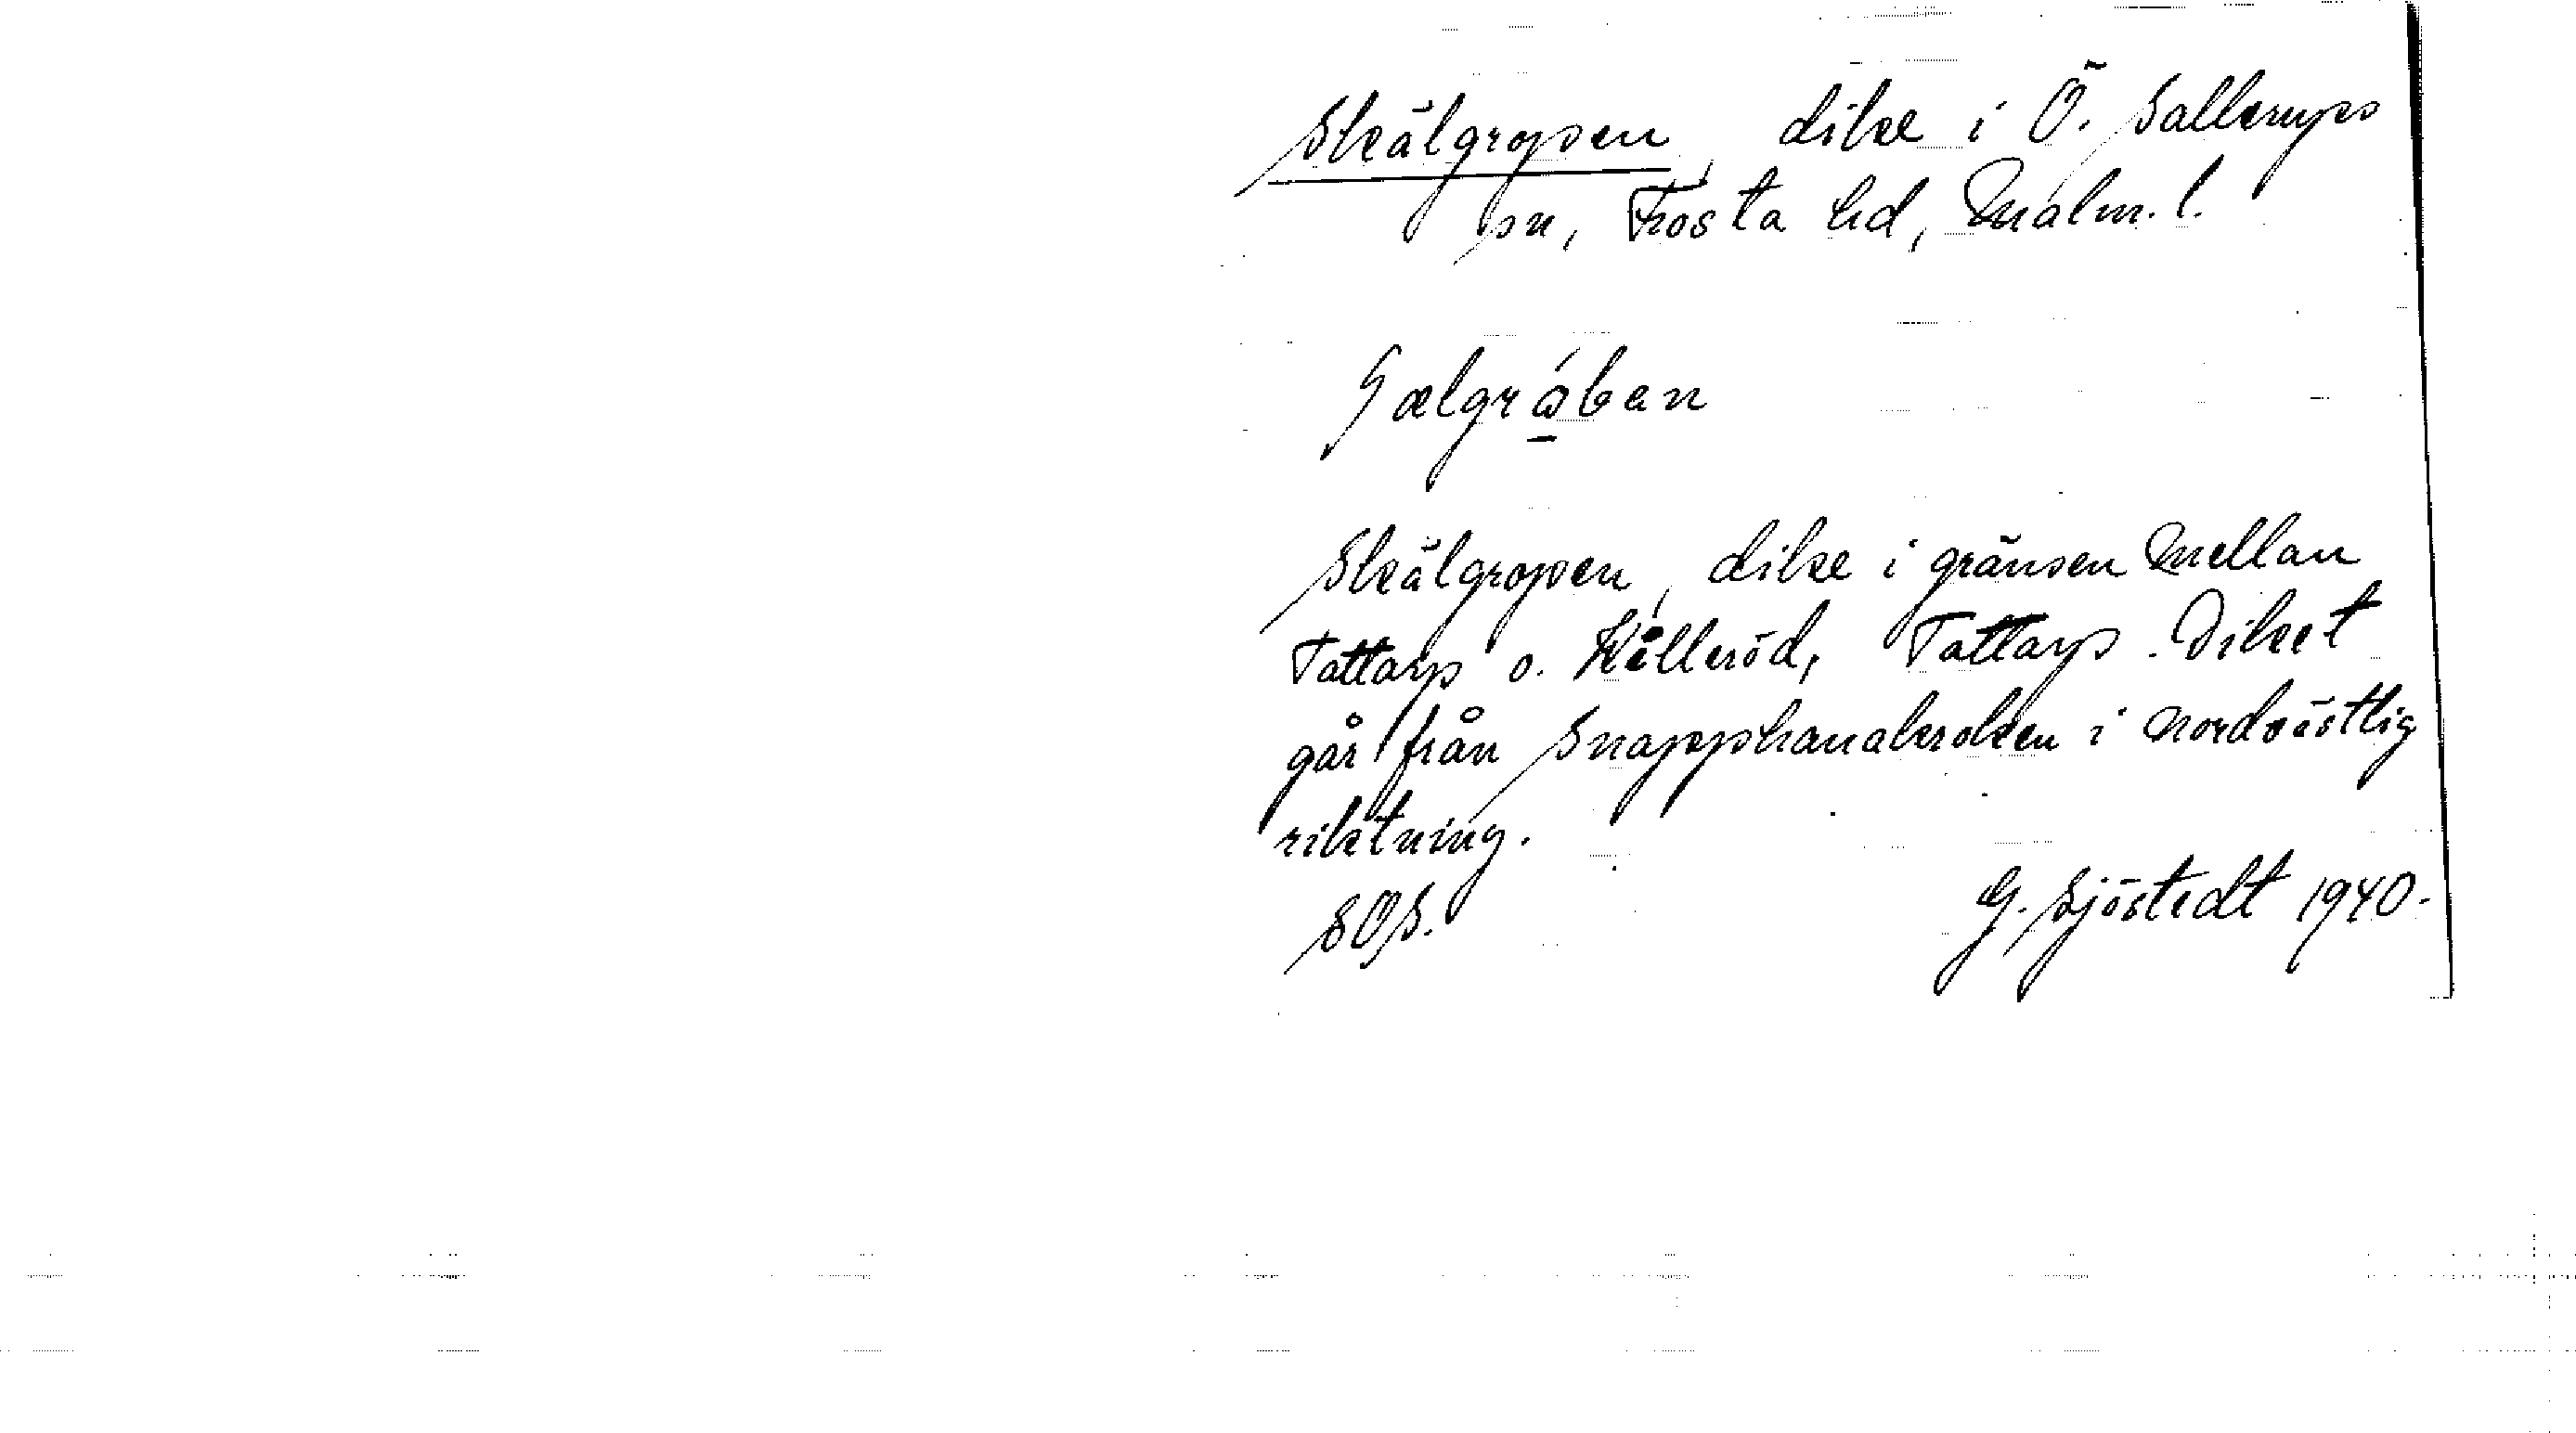 Skälgropen, dike i Ö. Sallerups
sn, Frosta hd, Malm. l.
ʃælgråben
Skälgropen, dike i gränsen mellan
Tattarp o. Källeröd, Tattarp. Diket
går från Snapphanakroken i nordvästlig
riktning.
SOS.
G. Sjöstedt 1940.